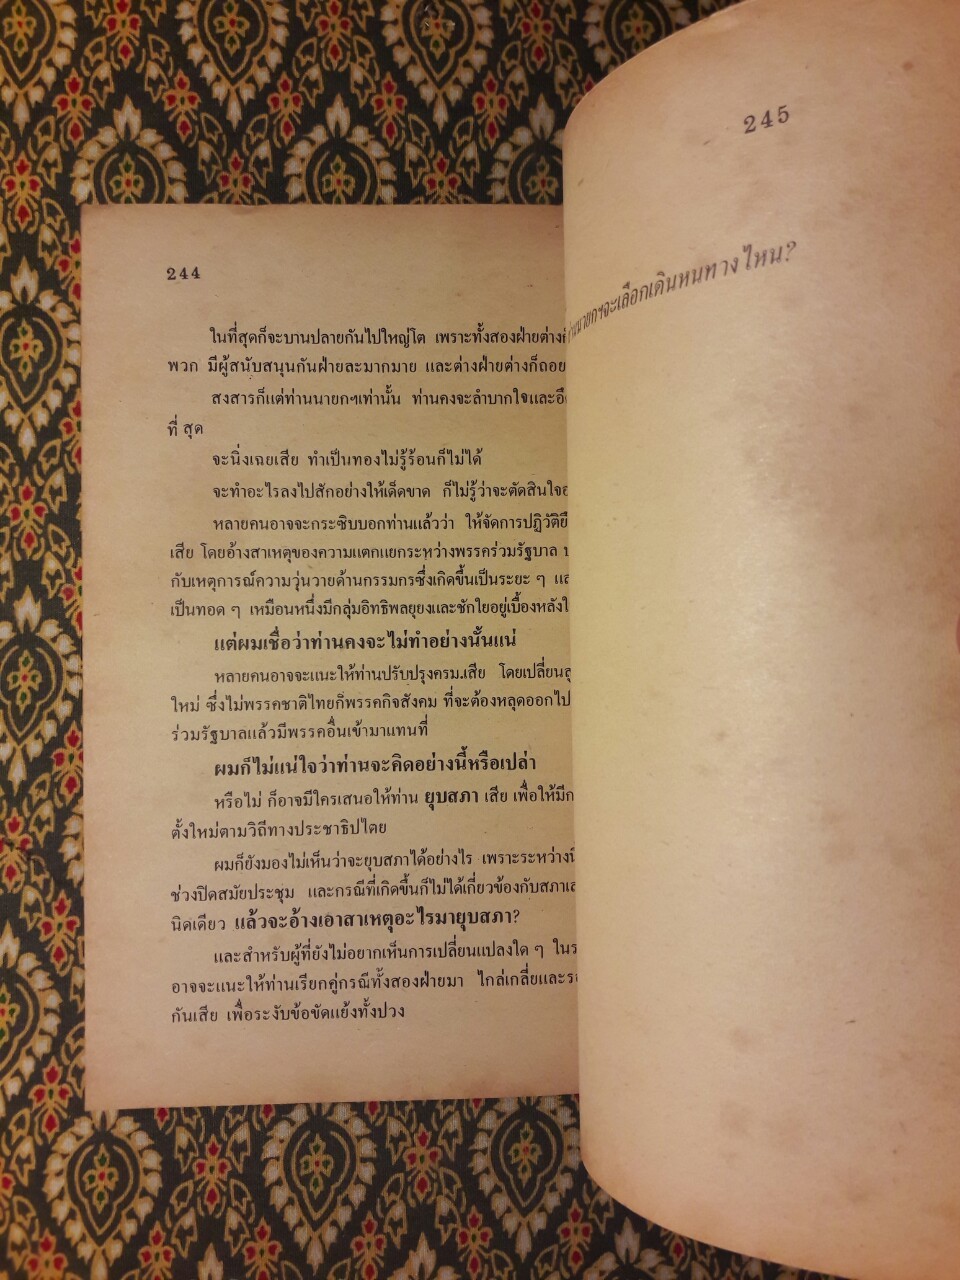 244
ในที่สุดก็จะบานปลายกันไปใหญ่โต เพราะทั้งสองฝ่ายต่าง
พวก มีผู้สนับสนุนกันฝ่ายละมากมาย และต่างฝ่ายต่างก็ถอย
สงสารก็แต่ท่านนายกฯเท่านั้น ท่านคงจะลำบากใจและ
ที่ สุด
จะนิ่งเฉยเสีย ทำเป็นทองไม่รู้ร้อนก็ไม่ได้
จะทำอะไรลงไปสักอย่างให้เด็ดขาด ก็ไม่รู้ว่าจะตัดสินใจ
หลายคนอาจจะกระซิบบอกท่านแล้วว่า ให้จัดการปฏิวัติ
เสีย โดยอ้างสาเหตุของความแตกแยกระหว่างพรรคร่วมรัฐบาล
กับเหตุการณ์ความวุ่นวายด้านกรรมกรซึ่งเกิดขึ้นเป็นระยะ ๆ
เป็นทอด ๆ เหมือนหนึ่งมีกลุ่มอิทธิพลยุยงและชักใยอยู่เบื้องหลัง
แต่ผมเชื่อว่าท่านคงจะไม่ทำอย่างนั้นแน่
หลายคนอาจจะแนะให้ท่านปรับปรุงครม.เสีย โดยเปลี่ยน
ใหม่ ซึ่งไม่พรรคชาติไทยก็พรรคกิจสังคม ที่จะต้องหลุดออกไป
ร่วมรัฐบาลแล้วมีพรรคอื่นเข้ามาแทนที่
ผมก็ไม่แน่ใจว่าท่านจะคิดอย่างนี้หรือเปล่า
หรือไม่ ก็อาจมีใครเสนอให้ท่าน ยุบสภา เสีย เพื่อให้มี
ตั้งใหม่ตามวิถีทางประชาธิปไตย
ผมก็ยังมองไม่เห็นว่าจะยุบสภาได้อย่างไร เพราะระหว่าง
ช่วงปิดสมัยประชุม และกรณีที่เกิดขึ้นก็ไม่ได้เกี่ยวข้องกับสภา
นิดเดียว แล้วจะอ้างเอาสาเหตุอะไรมายุบสภา?
และสำหรับผู้ที่ยังไม่อยากเห็นการเปลี่ยนแปลงใด ๆ ใน
อาจจะแนะให้ท่านเรียกคู่กรณีทั้งสองฝ่ายมา ไกล่เกลี่ยและ
กันเสีย เพื่อระงับข้อขัดแย้งทั้งปวง
245
นายกฯจะเลือกเดินหนทางไหน?